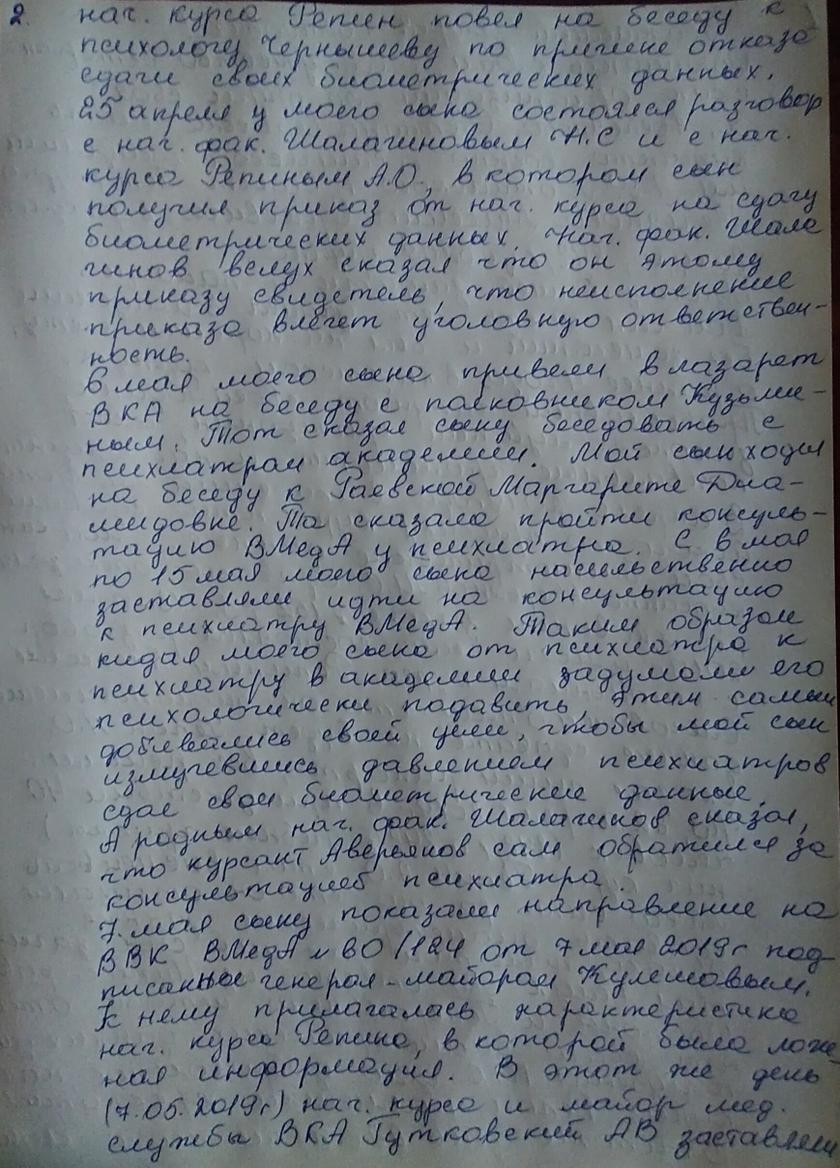 2. нач. курса Репин повел на беседу к
психологу Чернышеву по причине отказа
сдачи своих биометрических данных.
25 апреля у моего сына состоялся разговор
с нач. фак. Шалагиновым Н.С и с нач.
курса Репиным А.О, в котором сын
получил приказ от нач. курса на сдачу
биометрических данных. Нач. фак. Шала
гинов вслух сказал что он этому
приказу свидетель, что неисполнение
приказа влечет уголовную ответствен-
ность.
6 мая моего сына привели в лазарет
ВКА на беседу с полковником Кузьми-
ным. Тот сказал сыну беседовать с
психиатром академии. Мой сын ходил
на беседу к Раевской Маргарите Диа-
мидовне. Та сказала пройти консуль-
тацию ВМедА у психиатра. С 6 мая
по 15 мая моего сына насильственно
заставляли идти на консультацию
к психиатру ВМедА. Таким образом
кидая моего сына от психиатра к
психиатру в академии задумали его
психологически подавить, этим самым
добивались своей цели, чтобы мой сын
измучевшись давлением психиатров
сдал свои биометрические данные.
А родным нач. фак. Шалагинов сказал,
что курсант Аверьянов сам обратился за
консультацией психиатра.
7 мая сыну показали направление на
ВВК ВМедА № 60/124 от 7 мая 2019г под
писанное генерал-майором Кулешовым.
К нему прилагалась характеристика
нач. курса Репина, в которой была лож-
ная информация. В этот же день
(7.05.2019г) нач. курса и майор мед.
службы ВКА Гутковский АВ заставляли